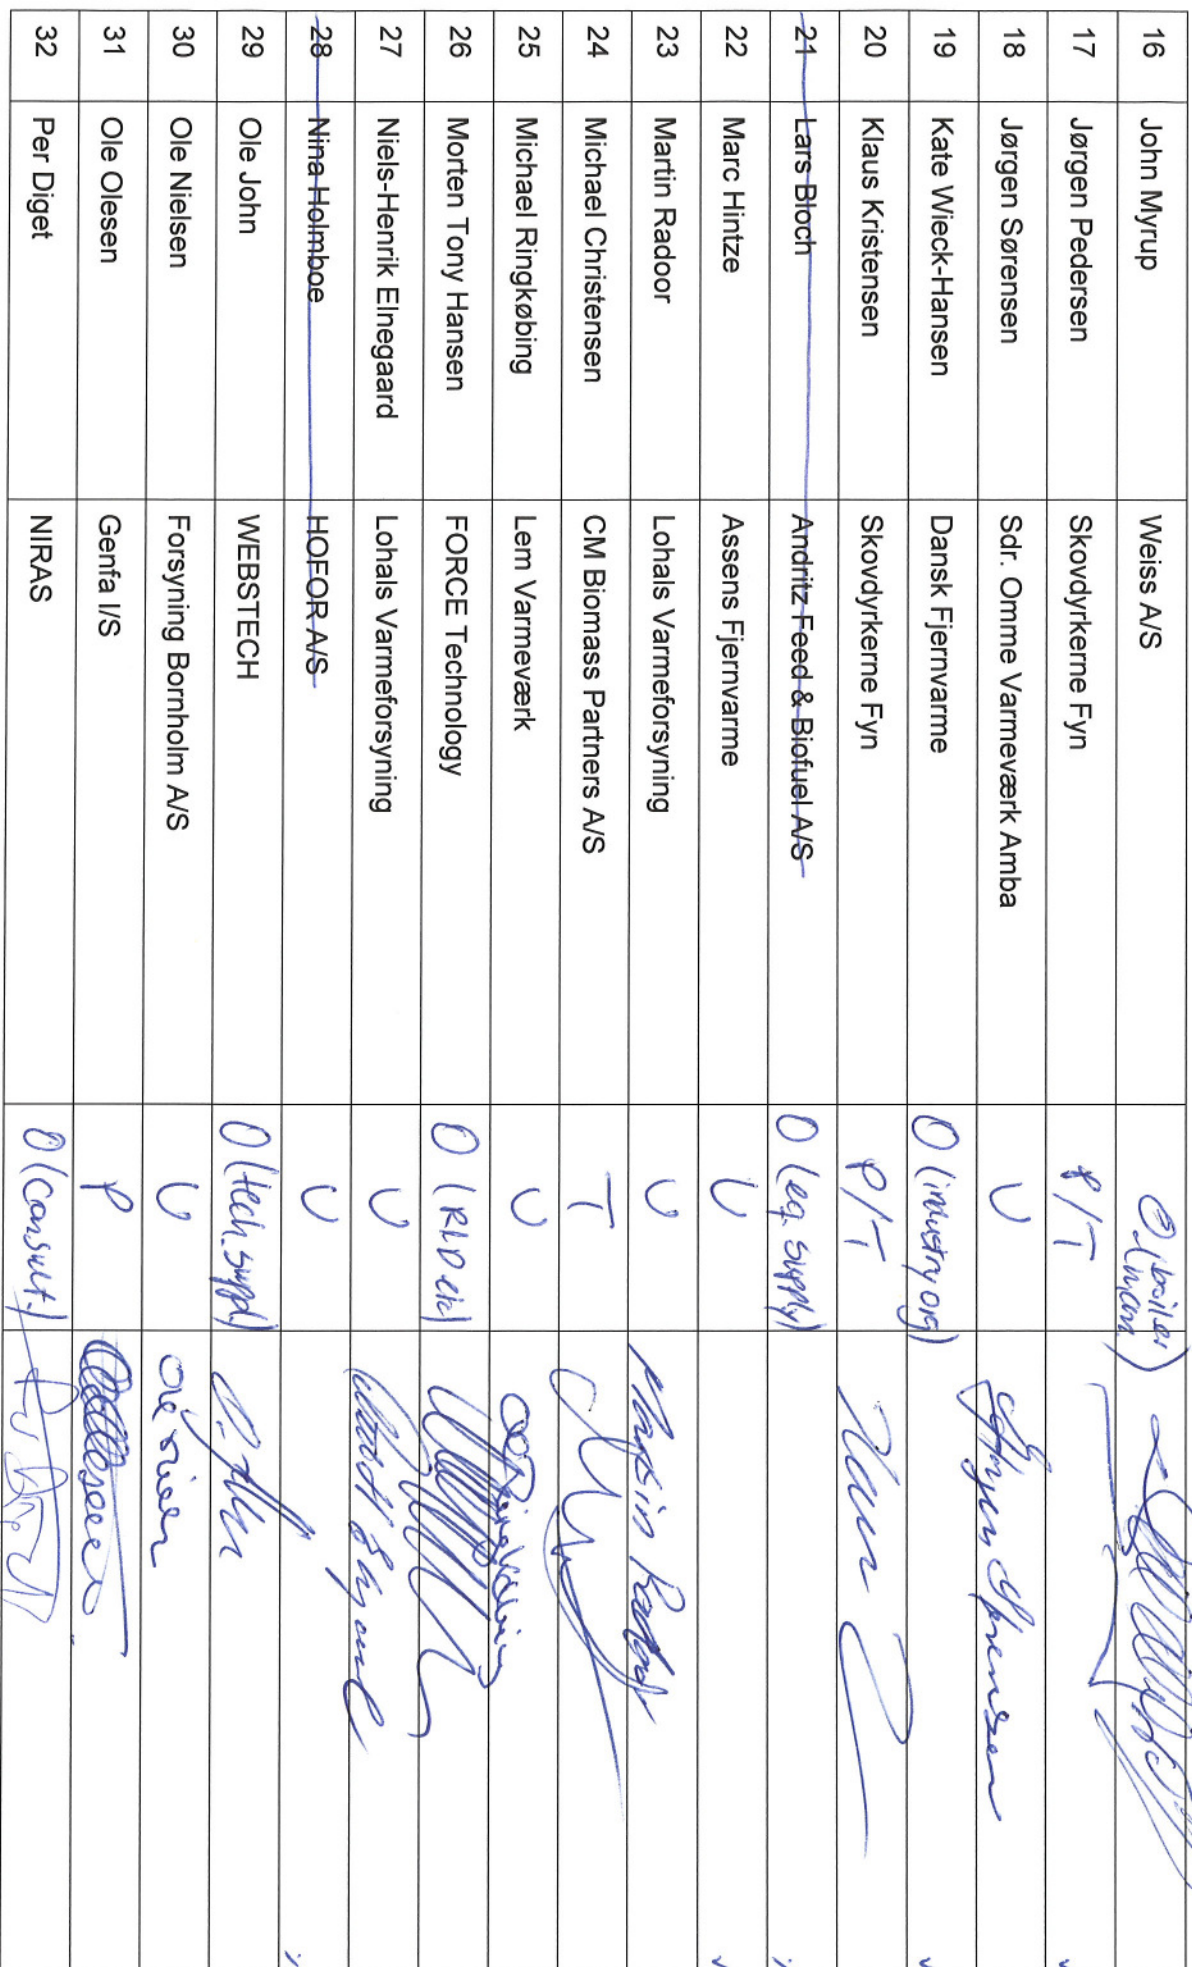 16 John Myrup Weiss A/S O (boiler man.)
17 Jørgen Pedersen Skovdyrkerne Fyn P/T
18 Jørgen Sørensen Sdr. Omme Varmeværk Amba U Jørgen Sørensen
19 Kate Wieck-Hansen Dansk Fjernvarme O (industry org)
20 Klaus Kristensen Skovdyrkerne Fyn P/T Klaus
21 Lars Bloch Andritz Feed & Biofuel A/S O (eq. supply)
22 Marc Hintze Assens Fjernvarme U
23 Martin Radoor Lohals Varmeforsyning U Martin Radoor
24 Michael Christensen CM Biomass Partners A/S T
25 Michael Ringkøbing Lem Varmeværk U
26 Morten Tony Hansen FORCE Technology O (R&D etc)
27 Niels-Henrik Elnegaard Lohals Varmeforsyning U
28 Nina Holmboe HOFOR A/S U
29 Ole John WEBSTECH O (tech. suppl.)
30 Ole Nielsen Forsyning Bornholm A/S U Ole
31 Ole Olesen Genfa I/S P
32 Per Diget NIRAS O (consult.)